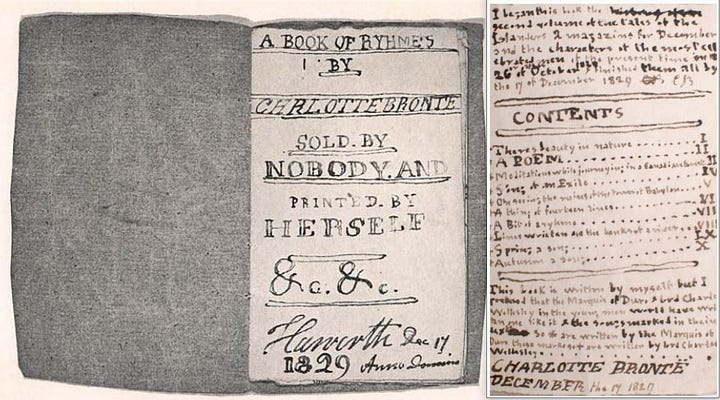 A BOOK OF RYHMES
BY
CHARLOTTE BRONTE
SOLD. BY
NOBODY. AND
PRINTED. BY
HERSELF
&c. &c.
Haworth Dec 17
1829 Anno Domini
I began this book the
second volume of the tales of the
Islanders 2 magazins for December
and the characters of the most cel
ebrated men of the present time on
26th of October 1829 finished them all by
the 17 of December 1829
CONTENTS
Theres beauty in nature I
A POEM II
Meditations while journeying in a Canadian
Song of an Exile IV
On seeing the ruins of the tower of Babylon V
A thing of fourteen lines VI
A Bit of a ryhme VII
Lines written on the banks of a river VIII
Spring a song IX
Autumn a song X
This book is written by myself but I
pretend that the Marquis of Duro & Lord Charles
Wellesley in the young mens world have written
one like it & the songs marked in the
so are written by the Marquis of
Duro those marked are written by Lord Charles
Wellesley
CHARLOTTE BRONTË
DECEMBER the 17 1829